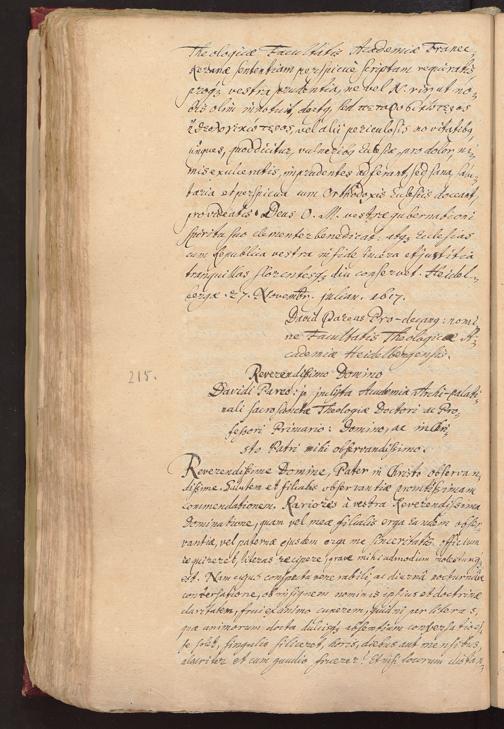 Theologicæ Facultatis Academiæ Franeckeranæ
sententiam perspicuè scriptam requiratis
vestra prudentia, ne vel N. vir ut nobis
olim innotuit, doctus, sed
vel alii periculosis novitatibus
ungues, quod dicitur, vulneribus Ecclesiæ, pro dolor, nimis
exulceratis, imprudentes adferant, sed sana, salutaria
et perspicua cum Orthodoxis Ecclesiis doceant,
provideatis. Deus O. M. vestræ gubernationi
spiritu suo clementer benedicat, atque Ecclesias
cum Republica vestra in fide sincera et justitia
tranquillas florentesque diu conservet. Heidelbergæ
27. Novembr. julian. 1617.
David Pareus Pro-decanus: nomine
Facultatis Theologicæ Academiæ
Heidelbergensis.
215.
Reverendissimo Domino
Davidi Pareo: in inclyta Academia Archi-palatinali
sacrosanctæ Theologiæ Doctori ac Professori
Primario: Domino, ac in Christo
Patri mihi observandissimo.
Reverendissime Domine, Pater in Christo observandissime.
Salutem et filialis observantiæ promtissimam
commendationem. Rariores à vestra Reverendissima
Dominatione, quam vel meæ filialis erga eandem observantiæ,
vel paternæ ejusdem erga me sinceritatis officium
requireret, literas recipere, grave mihi admodum molestumque
est. Nam cujus conspectu venerabili, ac diurnâ nocturnâque
conversatione, ob insignem nominis ipsius et doctrinæ
claritatem, frui ex animo cuperem, quidni per literas,
qua animorum docta dulcisque absentium confersatio esse
solet, singulis si liceret, horis, diebus aut mensibus,
alacriter et cum gaudio fruerer? Et nisi locorum distan